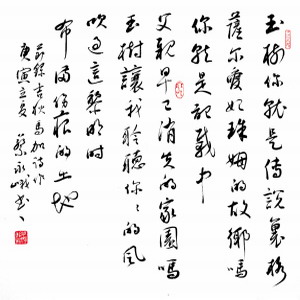 玉树你就是傳說裏格
薩尔愛妃珠姆的故鄉嗎
你就是記載中
父親早已消失的家園嗎
玉树讓我聆聽你丶的風
吹過這黎明时
布满伤痕的土地
節錄吉狄馬加诗作
庚寅立夏 蔡永峨书